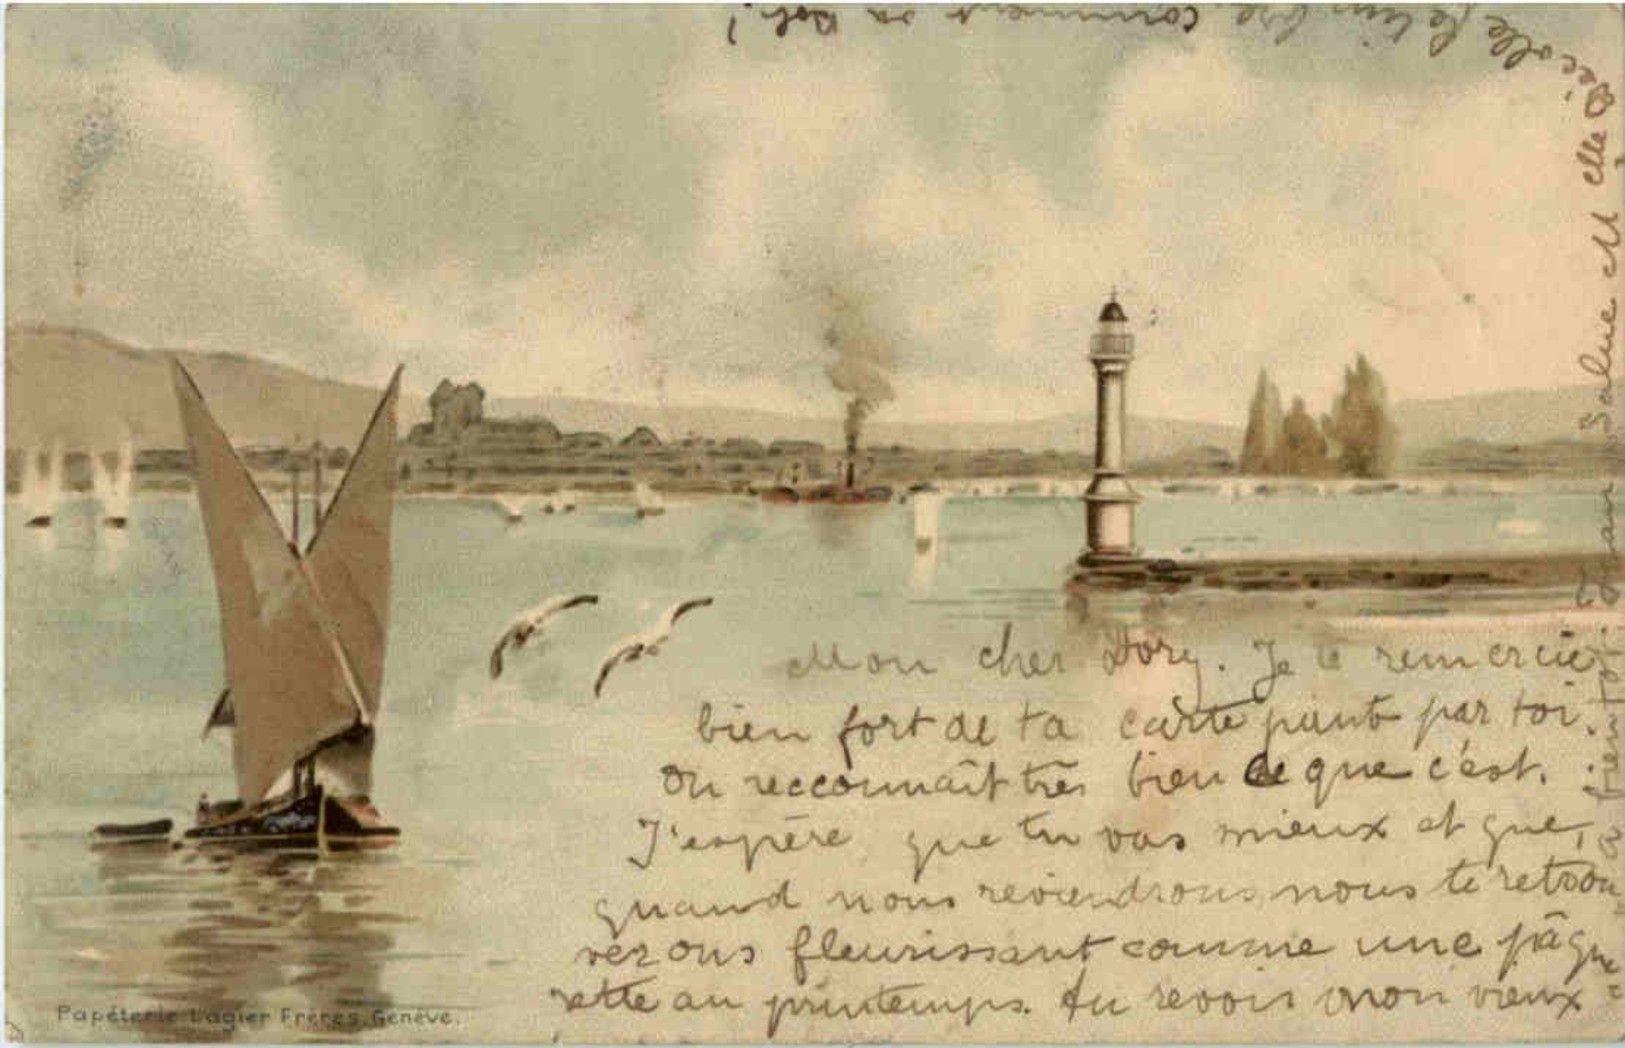 Mon cher Dory. Je te remercie
bien fort de ta carte painte par toi.
On reccounaît très bien ce que c'est.
J'espère, que tu vas mieux et que,
quand nous reviendrons, nous te retrou
verons fleurissant comme une pâque
rette au printemps. Au revoir mon vieux
à bientôt. Jean
Salue M elle
Décolle le timbre, comment va Bob!
Papéterie Lagier Frères, Genève.